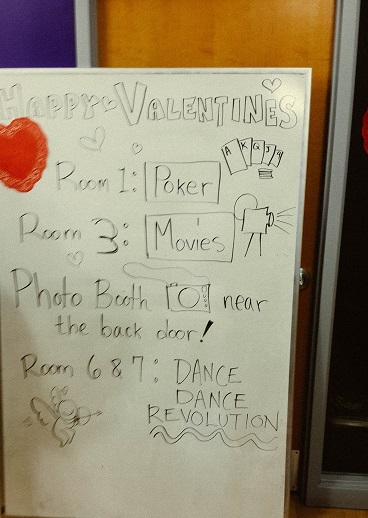 HAPPY VALENTINES
A K Q J 9
Room 1: Poker
Room 3: Movies
Photo Booth near
the back door!
Room 6 & 7: DANCE
DANCE
REVOLUTION